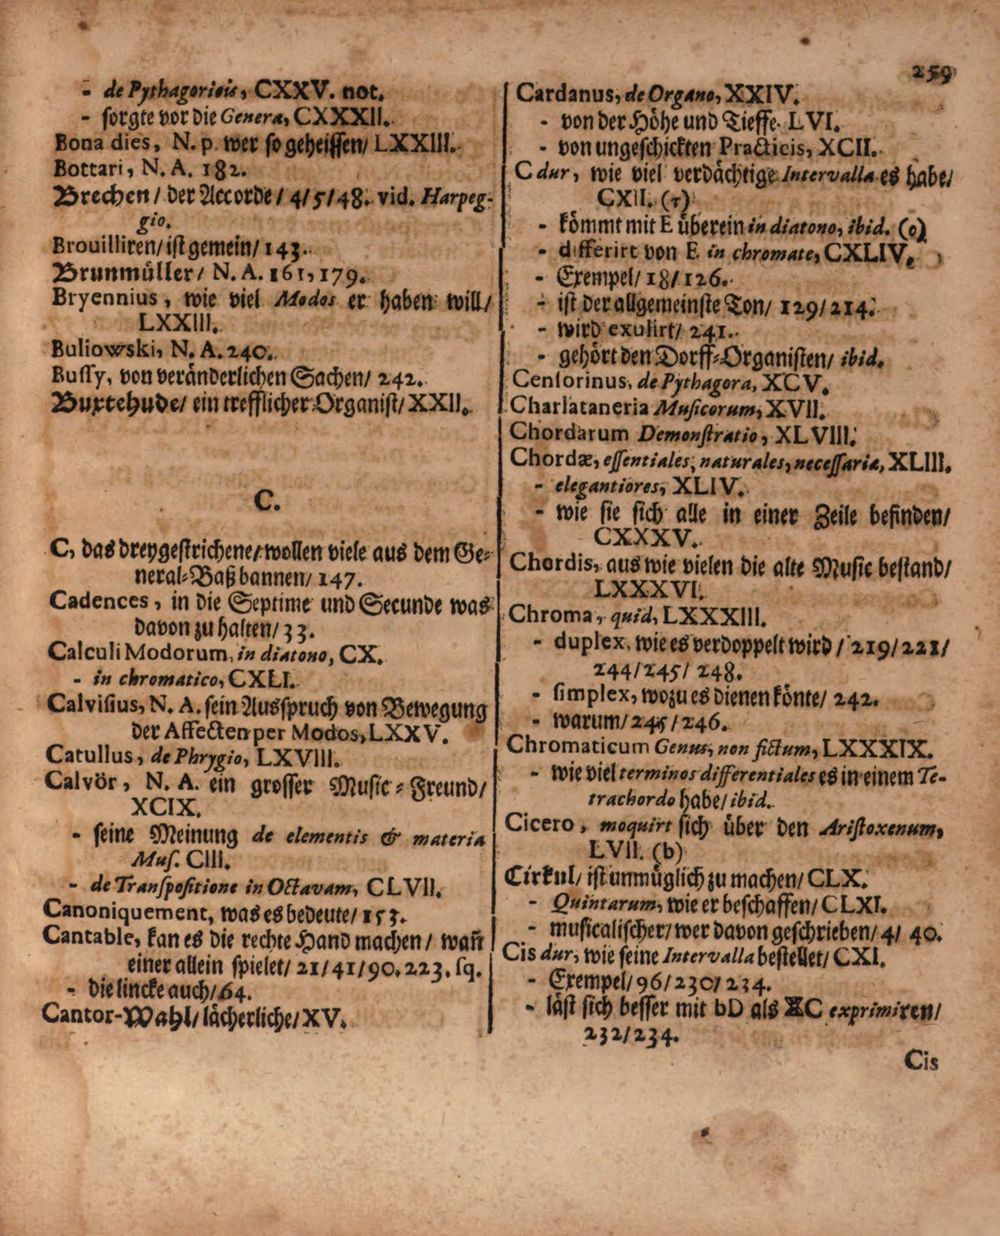 259
- de Pythagoricis, CXXV. not.
- sorgte vor die Genera, CXXXII.
Bona dies, N. p. wer so geheissen/ LXXIII.
Bottari, N. A. 182.
Brechen/ der Accorde/ 4/5/48. vid. Harpeg-
gio.
Brouilliren/ ist gemein/ 143.
Brunmüller/ N. A. 161, 179.
Bryennius, wie viel Modos er haben will/
LXXIII.
Buliowski, N. A. 240.
Bussy, von veränderlichen Sachen/ 242.
Buxtehude/ ein trefflicher Organist/ XXII.
C.
C, das dreygestrichene/ wollen viele aus dem Ge-
neral-Baß bannen/ 147.
Cadences, in die Septime und Secunde was
davon zu halten/ 33.
Calculi Modorum, in diatono, CX.
- in chromatico, CXLI.
Calvisius, N. A. sein Ausspruch von Bewegung
der Affecten per Modos, LXXV.
Catullus, de Phrygio, LXVIII.
Calvör, N. A. ein grosser Music-Freund/
XCIX.
- seine Meinung de elementis & materia
Mus. CIII.
- de Transpositione in Octavam, CLVII.
Canoniquement, was es bedeute/ 153.
Cantable, kan es die rechte Hand machen/ wañ
einer allein spielet/ 21/41/90. 223. sq.
- die lincke auch/ 64.
Cantor-Wahl/ lächerliche/ XV.
Cardanus, de Organo, XXIV.
- von der Höhe und Tieffe. LVI.
- von ungeschickten Practicis, XCII.
C dur, wie viel verdächtige Intervalla es habe/
CXII. (r)
- kömmt mit E überein in diatono, ibid. (o)
- differirt von E in chromate, CXLIV.
- Exempel/ 18/126.
- ist der allgemeinste Ton/ 129/214.
- wird exulirt/ 241.
- gehört den Dorff-Organisten/ ibid.
Censorinus, de Pythagora, XCV.
Charlataneria Musicorum, XVII.
Chordarum Demonstratio, XLVIII.
Chordæ, essentiales, naturales, necessariæ, XLIII.
- elegantiores, XLIV.
- wie sie sich alle in einer Zeile befinden/
CXXXV.
Chordis, aus wie vielen die alte Music bestand/
LXXXVI.
Chroma, quid, LXXXIII.
- duplex, wie es verdoppelt wird/ 219/221/
244/245/248.
- simplex, wozu es dienen könte/ 242.
- warum/ 245/246.
Chromaticum Genus, non fictum, LXXXIX.
- wie viel terminos differentiales es in einem Te-
trachordo habe/ ibid.
Cicero, moquirt sich über den Aristoxenum,
LVII. (b)
Cirkul/ ist unmüglich zu machen/ CLX.
- Quintarum, wie er beschaffen/ CLXI.
- musicalischer/ wer davon geschrieben/ 4/ 40.
Cis dur, wie seine Intervalla bestellet/ CXI.
- Exempel/ 96/230/234.
- läst sich besser mit bD als ⵣC exprimiren/
232/234.
Cis